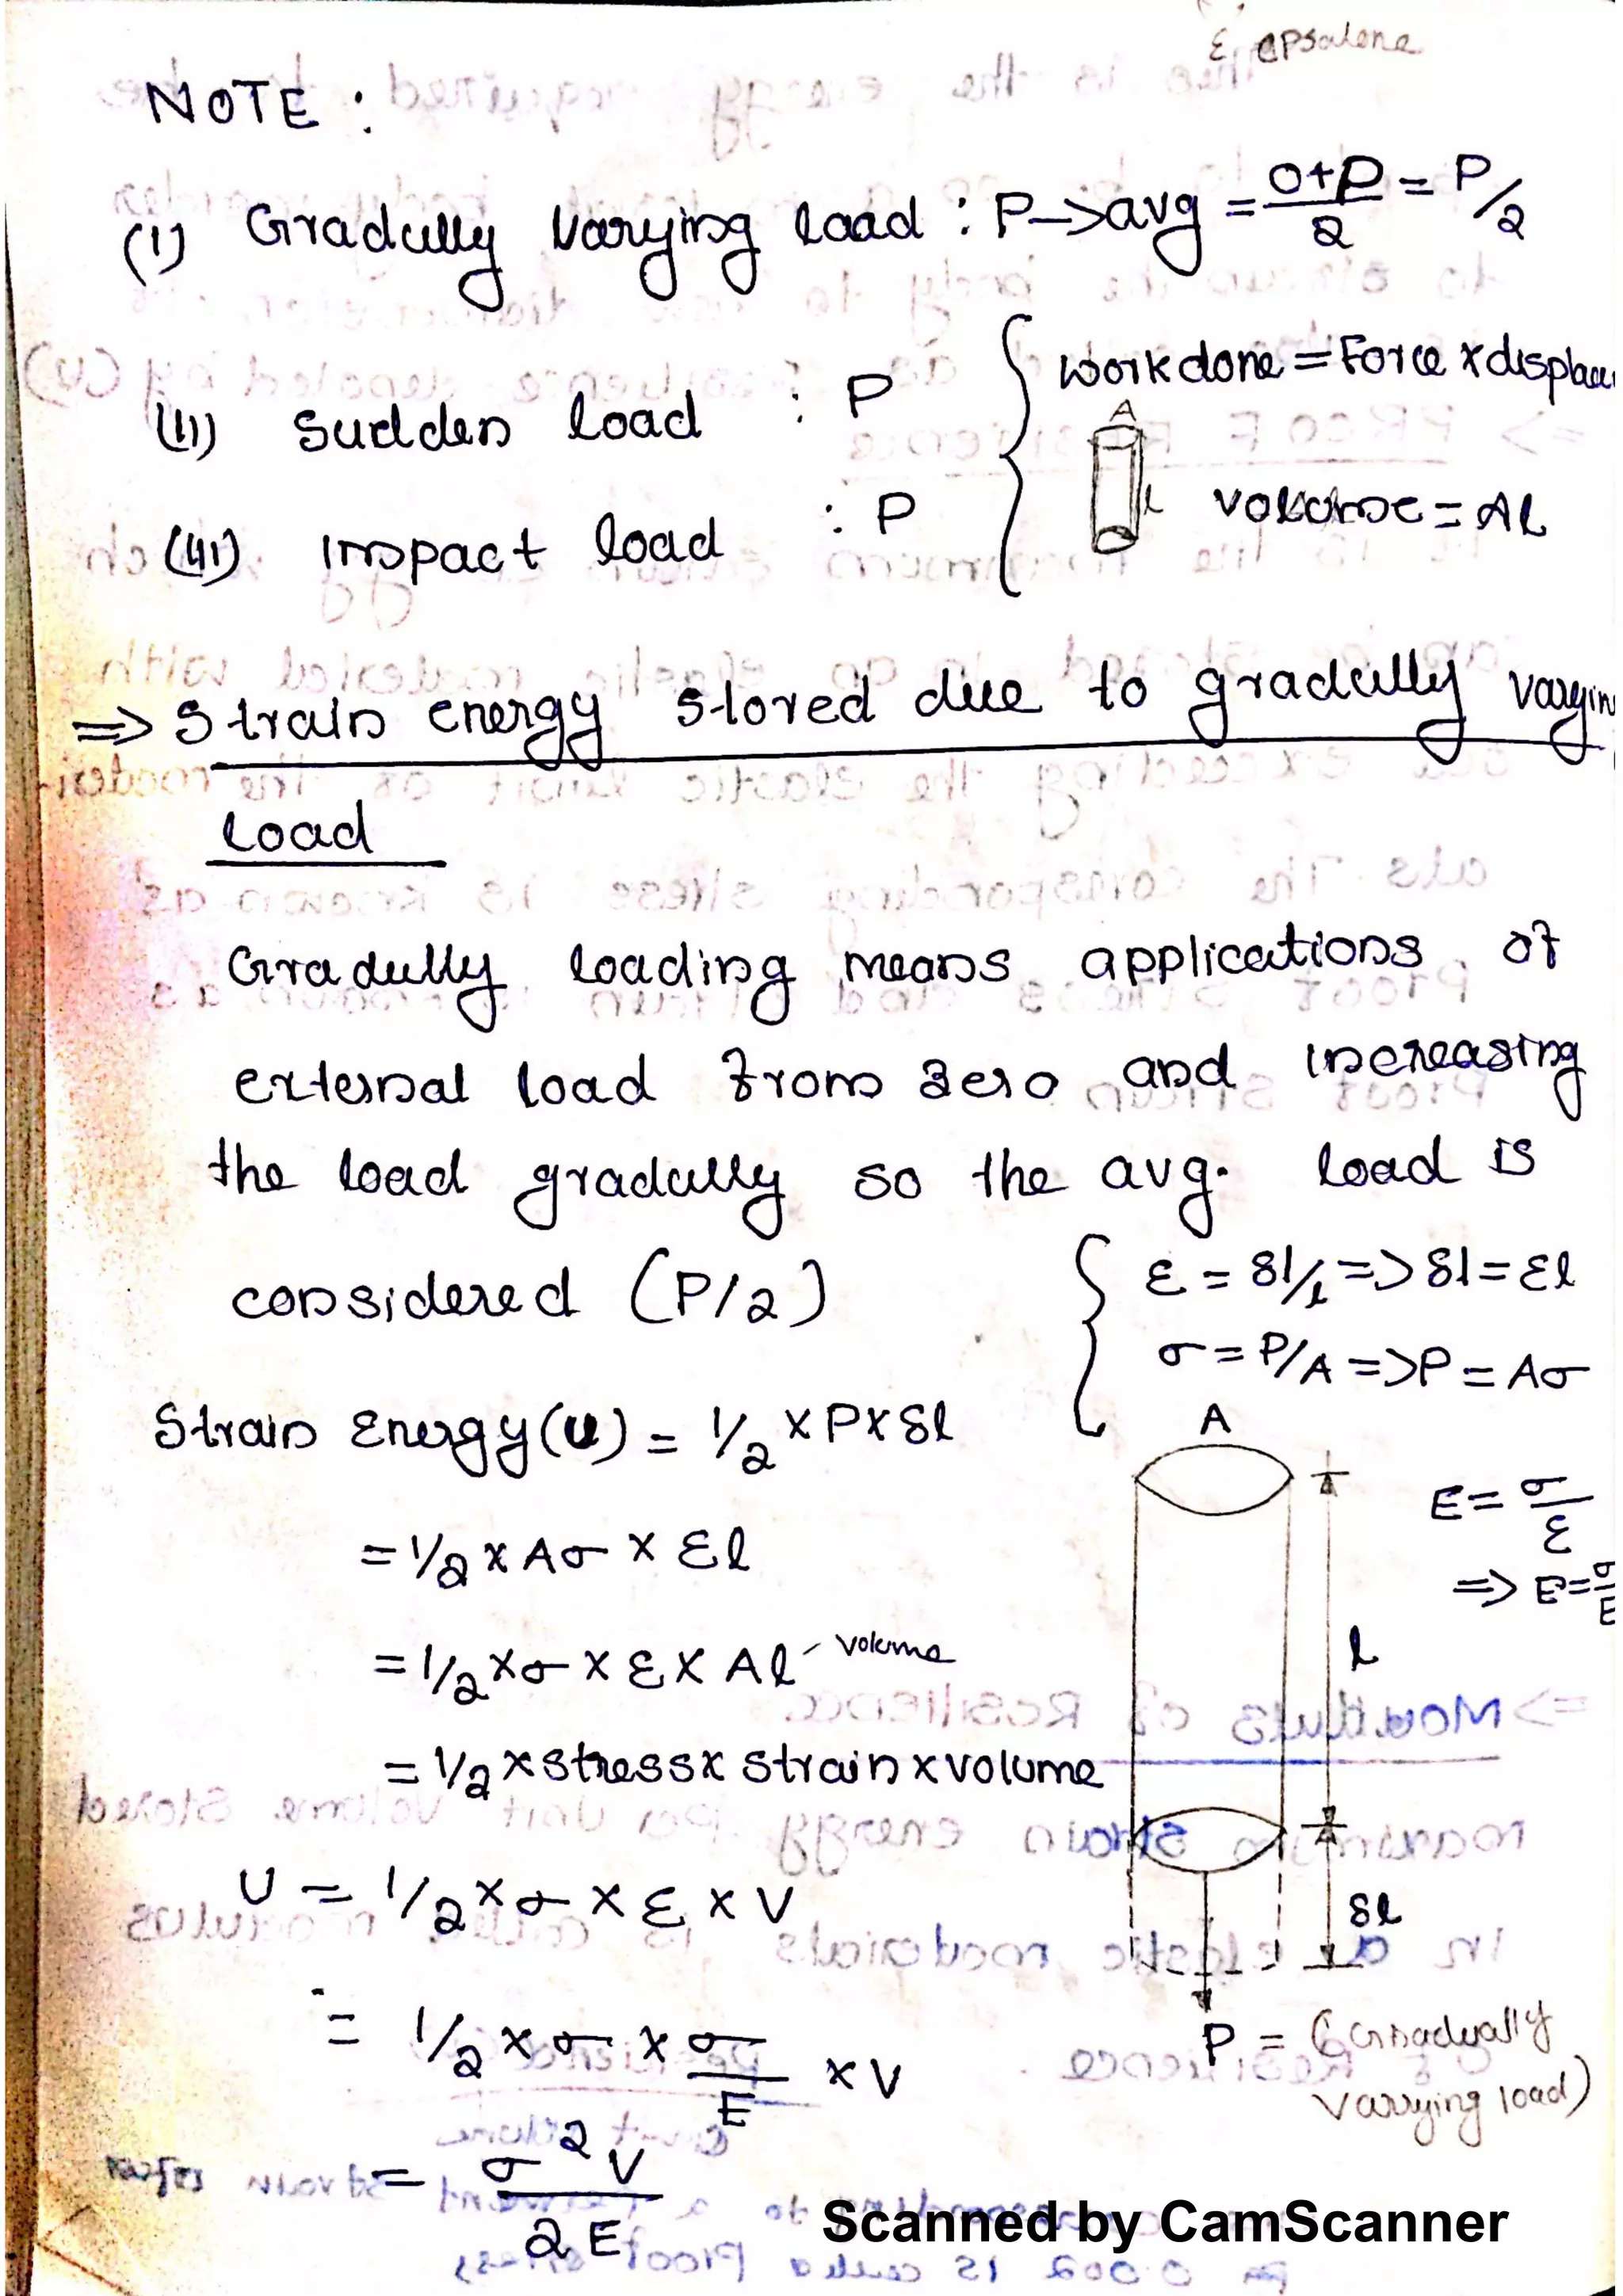 ε epsalone
NOTE :
(i) Gradully varying load : P→avg = 0+P/2 = P/2
(ii) Sudden load : P
(iii) Impact load : P
Workdone = Force x displace
A
l
volume = Al
=> Strain energy stored due to gradully varyin
load
Gradully loading means applications of
external load from zero and increasing
the load gradully so the avg. load is
considered (P/2)
ε = δl/l => δl = εl
σ = P/A => P = Aσ
Strain Energy (U) = 1/2 x P x δl
= 1/2 x Aσ x εl
= 1/2 x σ x ε x Al - volume
= 1/2 x stress x strain x volume
U = 1/2 x σ x ε x V
= 1/2 x σ x σ/E x V
= σ²V/2E
A
E = σ/ε
=> E = σ/E
l
δl
P = (Gradually
varying load)
Scanned by CamScanner